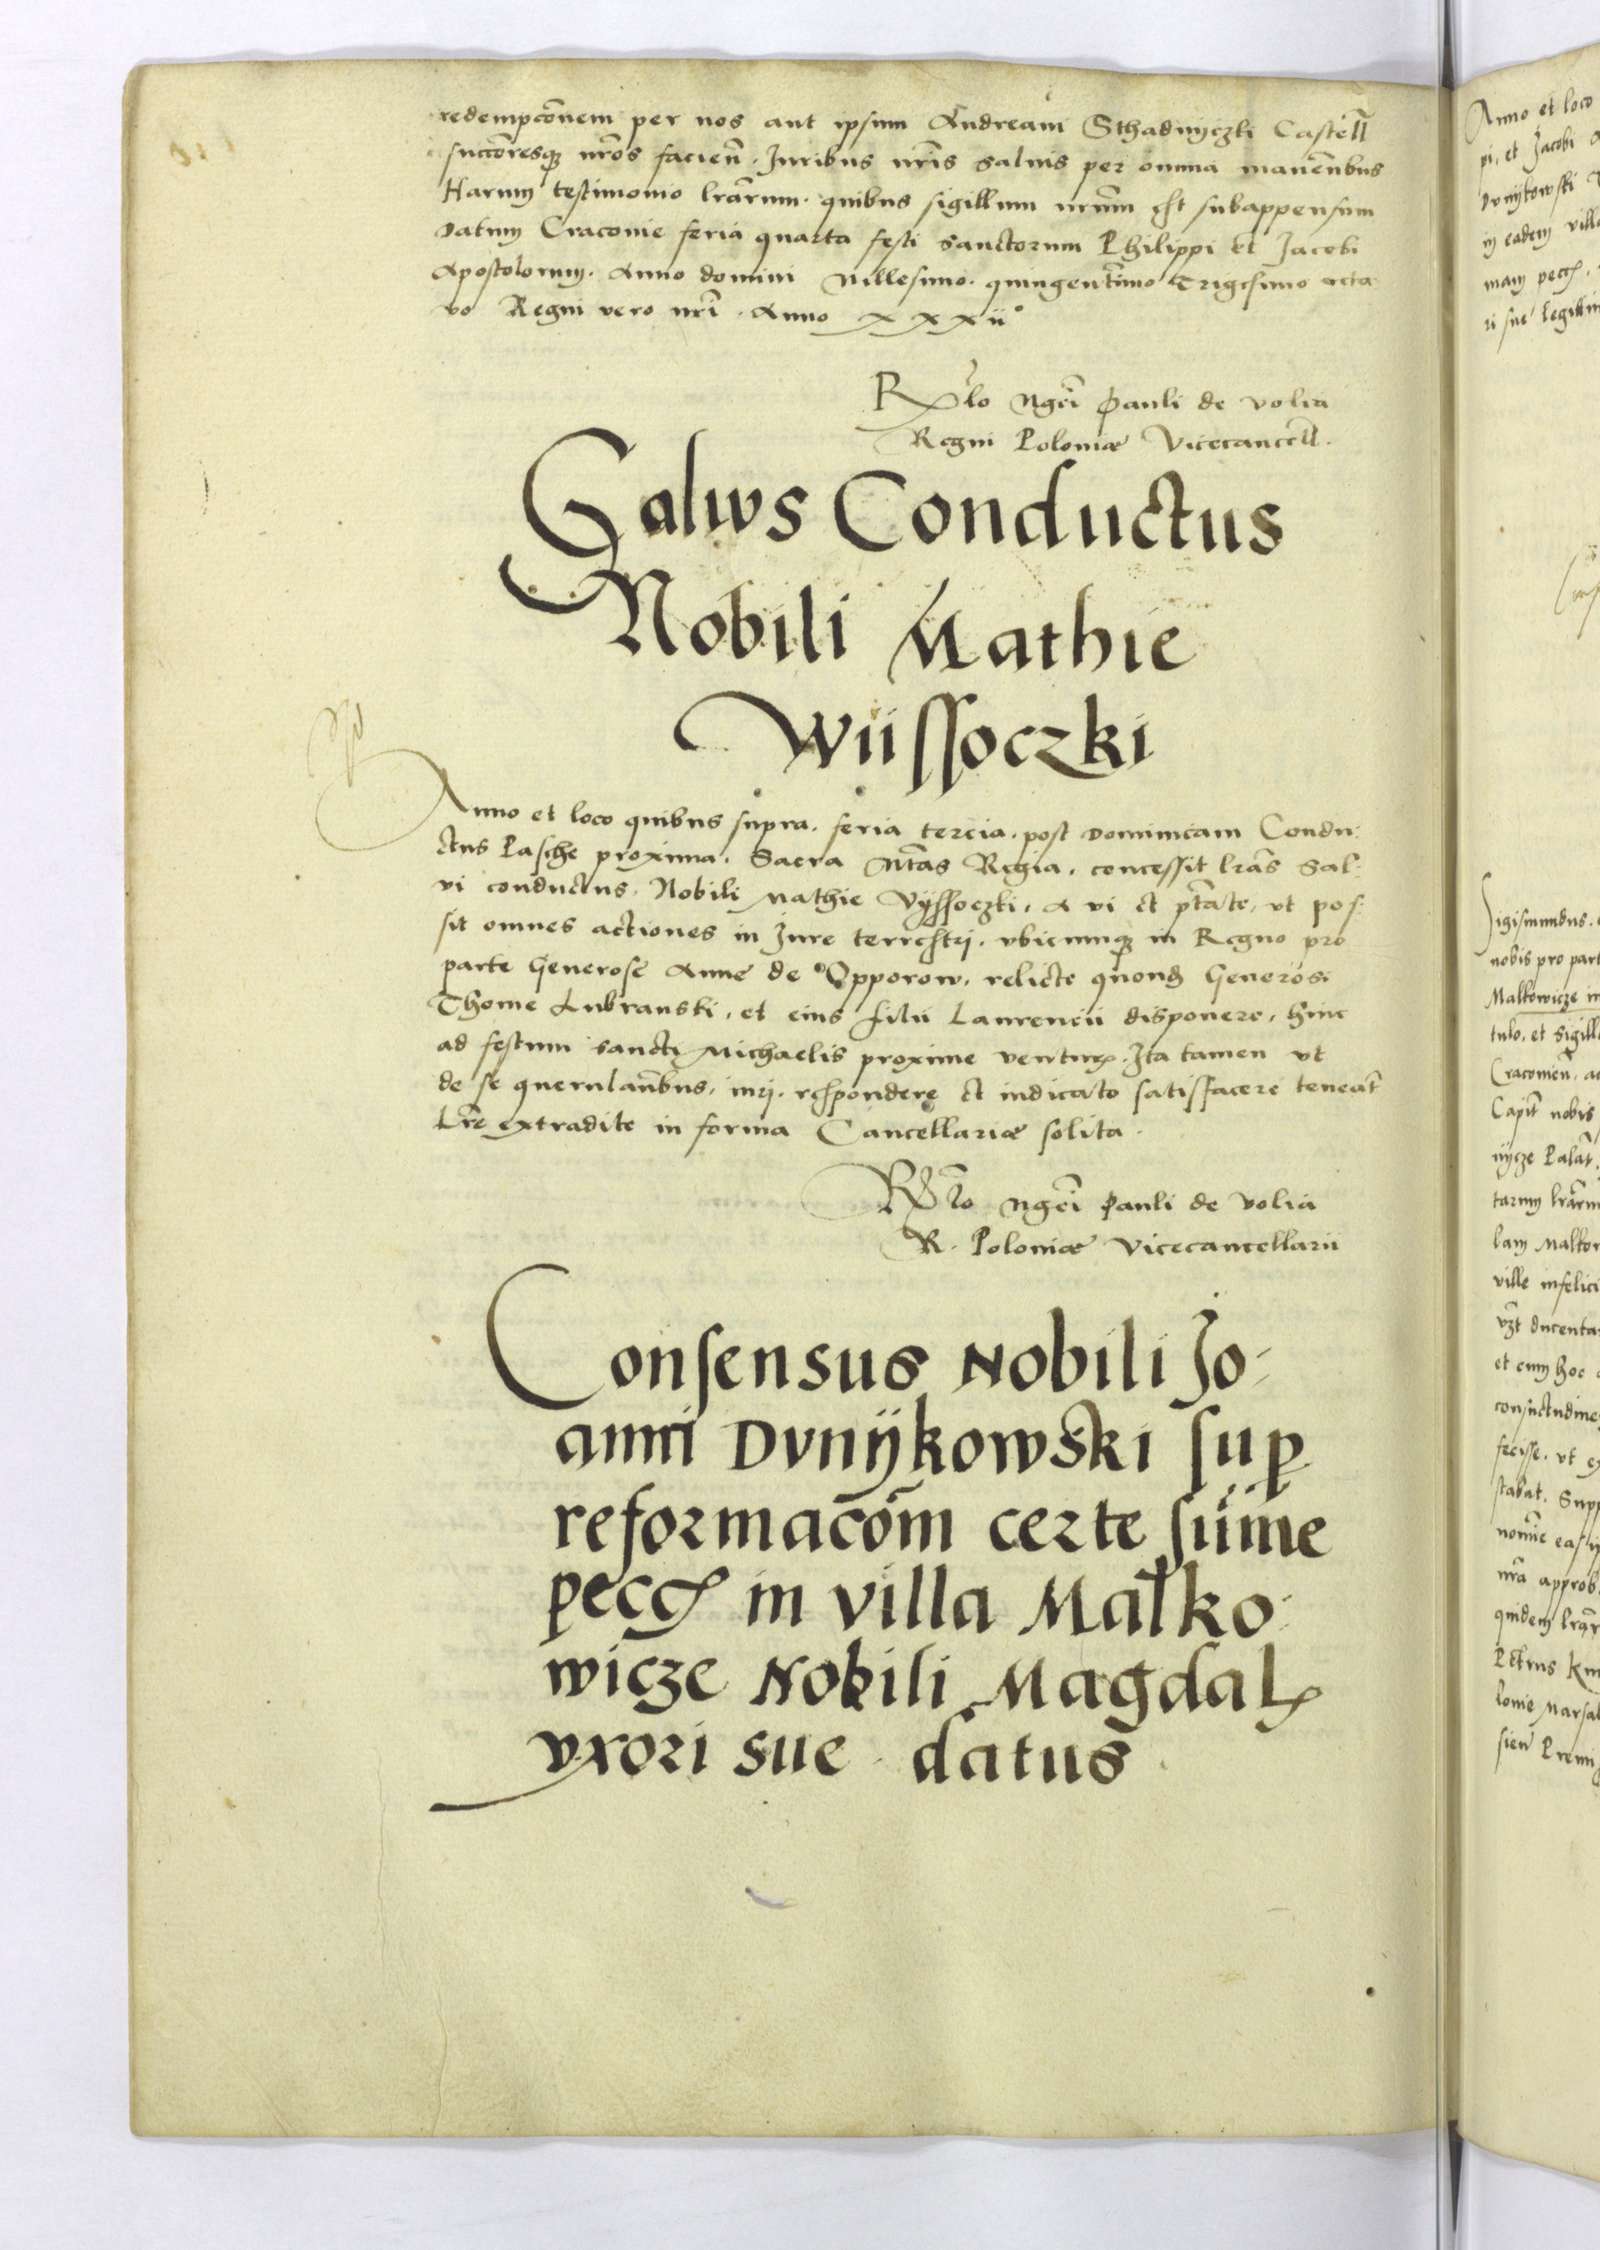 redempcõnem per nos aut ipsum Andream Sthadnyczki Castell̃
succõresqꝫ nr̃os facieñ. Juribus nr̃is salvis per omnia maneñbus
Harum testimonio lr̃arum. quibus sigillum nr̃um est subappensum
Datum Cracovie feria quarta festi sanctorum Philippi et Jacobi
Apostolorum. Anno domini Millesimo. quingentĩmo Trigesimo octa
vo Regni vero nr̃i. Anno xxxii°
Rel̃o Mgc̃i Pauli de Volia
Regni Poloniæ Vicecancell̃.
Salws Conductus
Nobili Mathie
Wiissoczki
Anno et loco quibus supra. feria tercia. post Dominicam Condu
ctus Pasche proxima. Sacra Mt̃as Regia. concessit lr̃as Sal-
vi conductus. Nobili Mathie Vÿssoczki. A vi et pt̃ate, ut pos-
sit omnes actiones in Jure terrestri. ubicumqꝫ in Regno pro
parte Generose Anne de Opporow. relicte quonđ Generosi
Thome Lubranski, et eius filii Laurencii disponere, hinc
ad festum sancti Michaelis proxime venturꝝ. Ita tamen ut
de se querulañbus, iurj. respondere et iudicato satisfacere teneat̃
Lr̃e extradite in forma Cancellariæ solita.
Rel̃o Mgc̃i Pauli de Volia
R. Poloniæ Vicecancellarii
Consensus Nobili Jo-
anni Dvnÿkowski suꝑ
reformacõm certe sum̃e
pecꝝ in villa Malko-
wicze Nobili Magdalꝝ
vxori sue datus
Anno et loco
pi, et Jacobi
Dvnÿkowski
in eadem villa
mam pecꝝ.
ri sue legittim
Sigismundus.
nobis pro part
Malkowicze in
tulo, et sigill
Cracovieñ. ac
Capit̃ nobis
nÿcze Palat̃.
tarum lr̃arum
lam Malkow
ville infelici
vꝫt ducenta
et cum hoc
consuetudine
fecisse. ut ex
stabat. Supp
nomĩe eas
nr̃a approb
quidem lr̃ar
Petrus Km
lonie Marsal
sieñ Premi